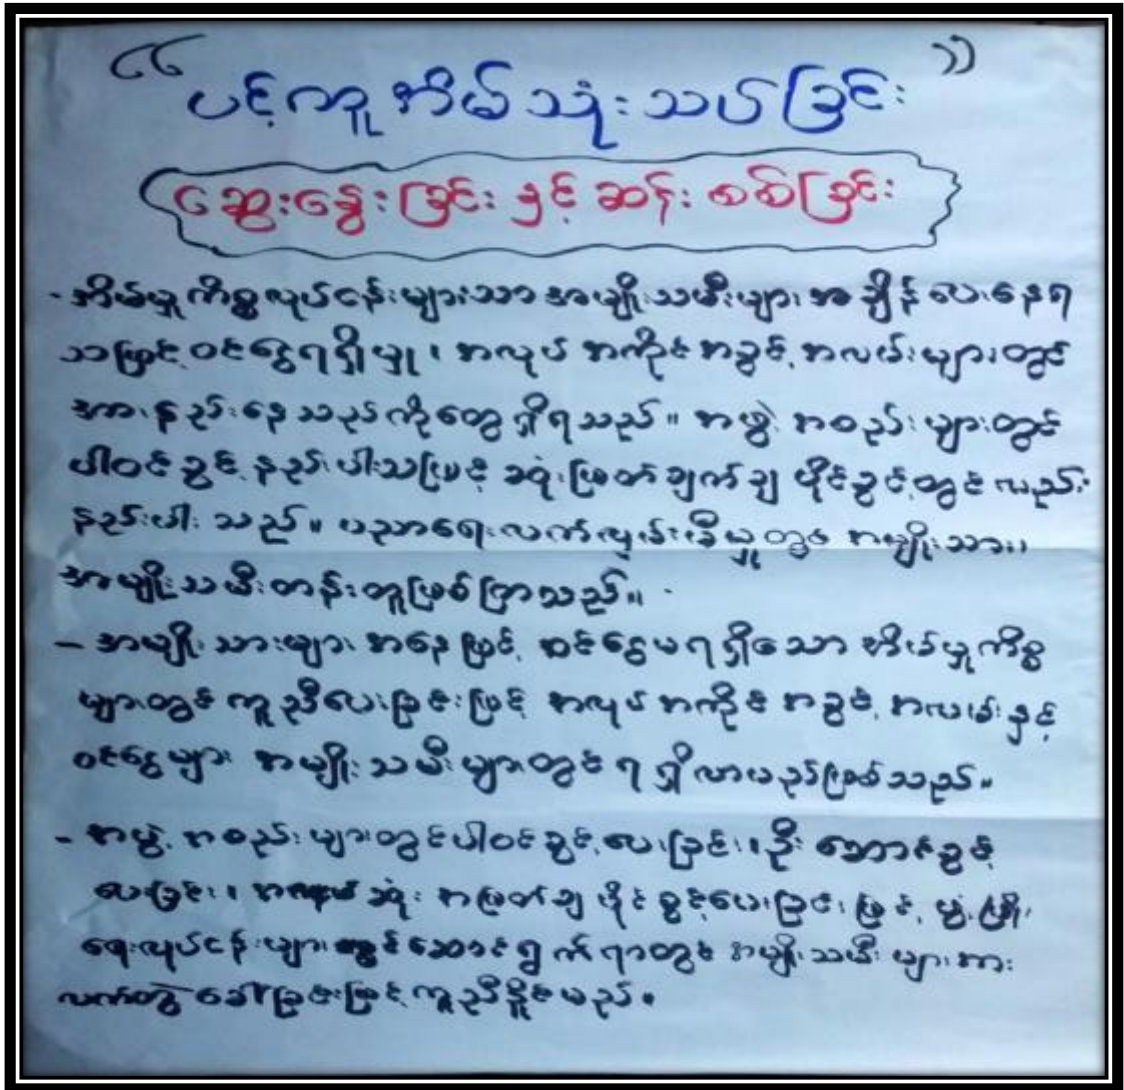 “ ပင့်ကူအိမ်သုံးသပ်ခြင်း ”
ဆွေးနွေးခြင်းနှင့်ဆန်းစစ်ခြင်း
- အိမ်မှုကိစ္စလုပ်ငန်းများသာ အမျိုးသမီးများ အချိန်ပေးနေရ
သဖြင့် ဝင်ငွေရရှိမှု၊ အလုပ် အကိုင်အခွင့် အလမ်းများတွင်
အားနည်းနေသည်ကိုတွေ့ရှိရသည်။ အဖွဲ့ အစည်းများတွင်
ပါဝင်ခွင့် နည်းပါးသဖြင့် ဆုံးဖြတ်ချက်ချ ပိုင်ခွင့်တွင်လည်း
နည်းပါးသည်။ ပညာရေးလက်လှမ်းမှီမှုတွင် အမျိုးသား၊
အမျိုးသမီးတန်းတူဖြစ်ကြသည်။
- အမျိုးသားများ အနေဖြင့် ဝင်ငွေမရရှိသော အိမ်မှုကိစ္စ
များတွင် ကူညီပေးခြင်းဖြင့် အလုပ်အကိုင် အခွင့် အလမ်းနှင့်
ဝင်ငွေများ အမျိုးသမီးများတွင် ရရှိလာမည်ဖြစ်သည်။
- အဖွဲ့ အစည်းများတွင်ပါဝင်ခွင့်ပေးခြင်း၊ ဦးဆောင်ခွင့်
ပေးခြင်း၊ ဆုံး အဖြတ်ချ ပိုင်ခွင့်ပေးခြင်းဖြင့် ဖွံ့ဖြိုး
ရေးလုပ်ငန်းများ ဆောင်ရွက်ရာတွင် အမျိုးသမီးများအား
လက်တွဲခေါ်ခြင်းဖြင့် ကူညီနိုင်မည်။